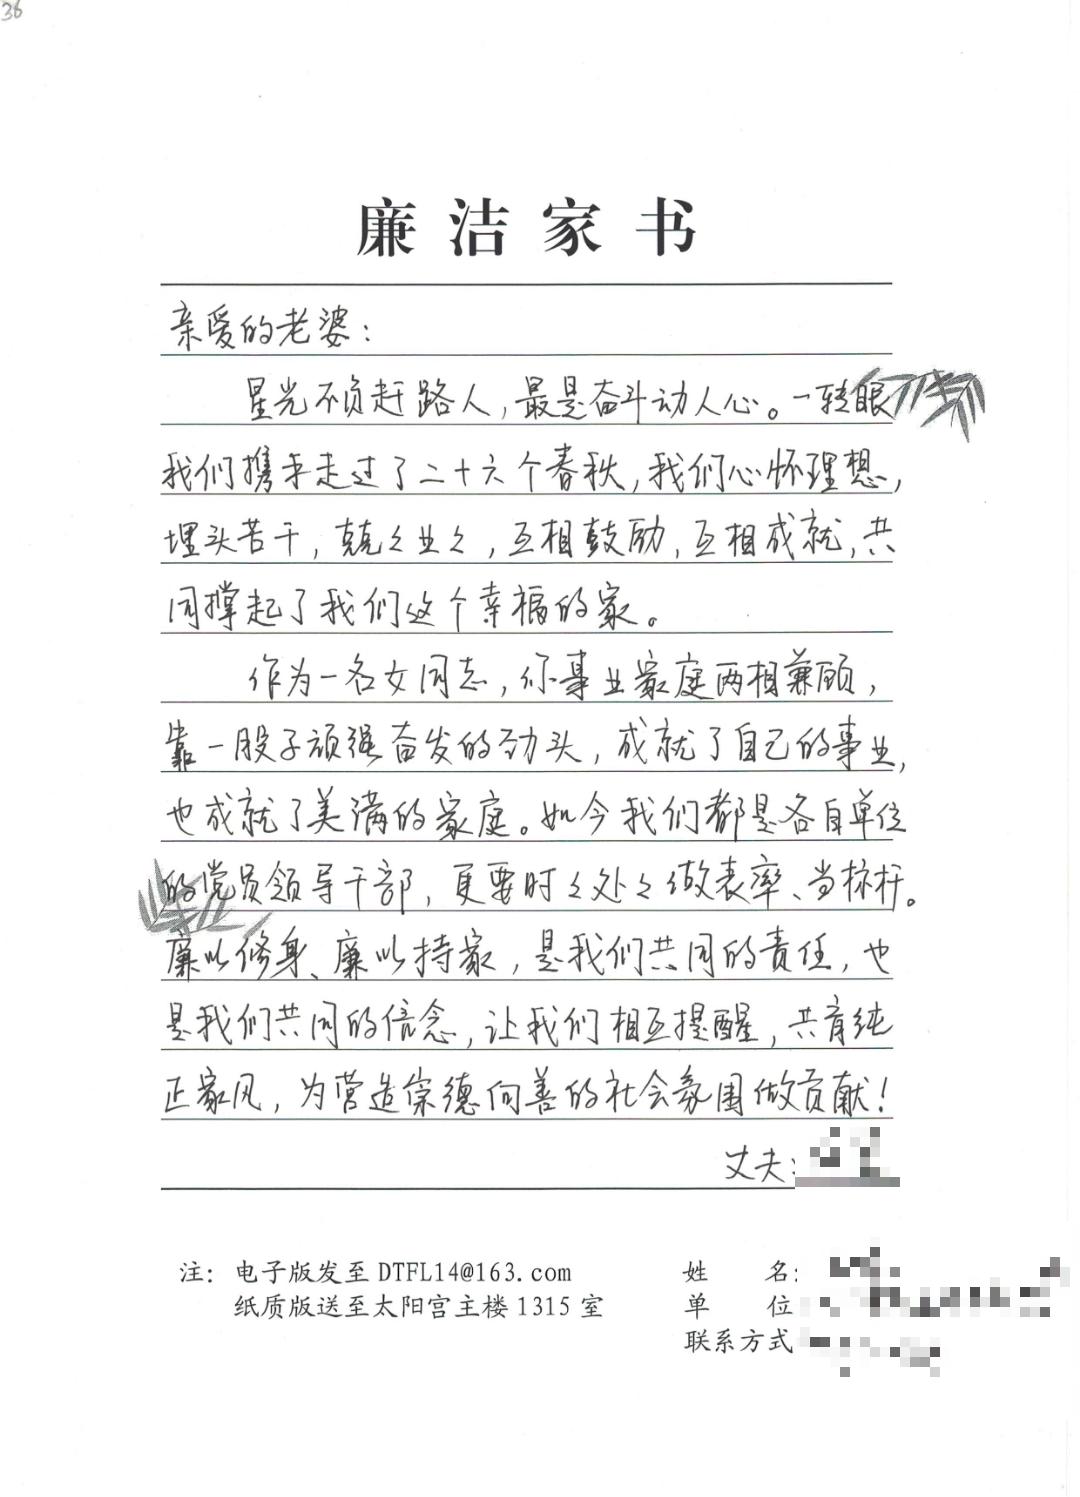 36
廉洁家书
亲爱的老婆：
星光不负赶路人，最是奋斗动人心。一转眼
我们携手走过了二十六个春秋，我们心怀理想，
埋头苦干，兢々业々，互相鼓励，互相成就，共
同撑起了我们这个幸福的家。
作为一名女同志，你事业家庭两相兼顾，
靠一股子顽强奋发的劲头，成就了自己的事业，
也成就了美满的家庭。如今我们都是各自单位
的党员领导干部，更要时々处々做表率、当标杆。
廉以修身、廉以持家，是我们共同的责任，也
是我们共同的信念，让我们相互提醒，共育纯
正家风，为营造崇德向善的社会氛围做贡献！
丈夫：
注：电子版发至 DTFL14@163.com
纸质版送至太阳宫主楼 1315 室
姓 名：
单 位
联系方式